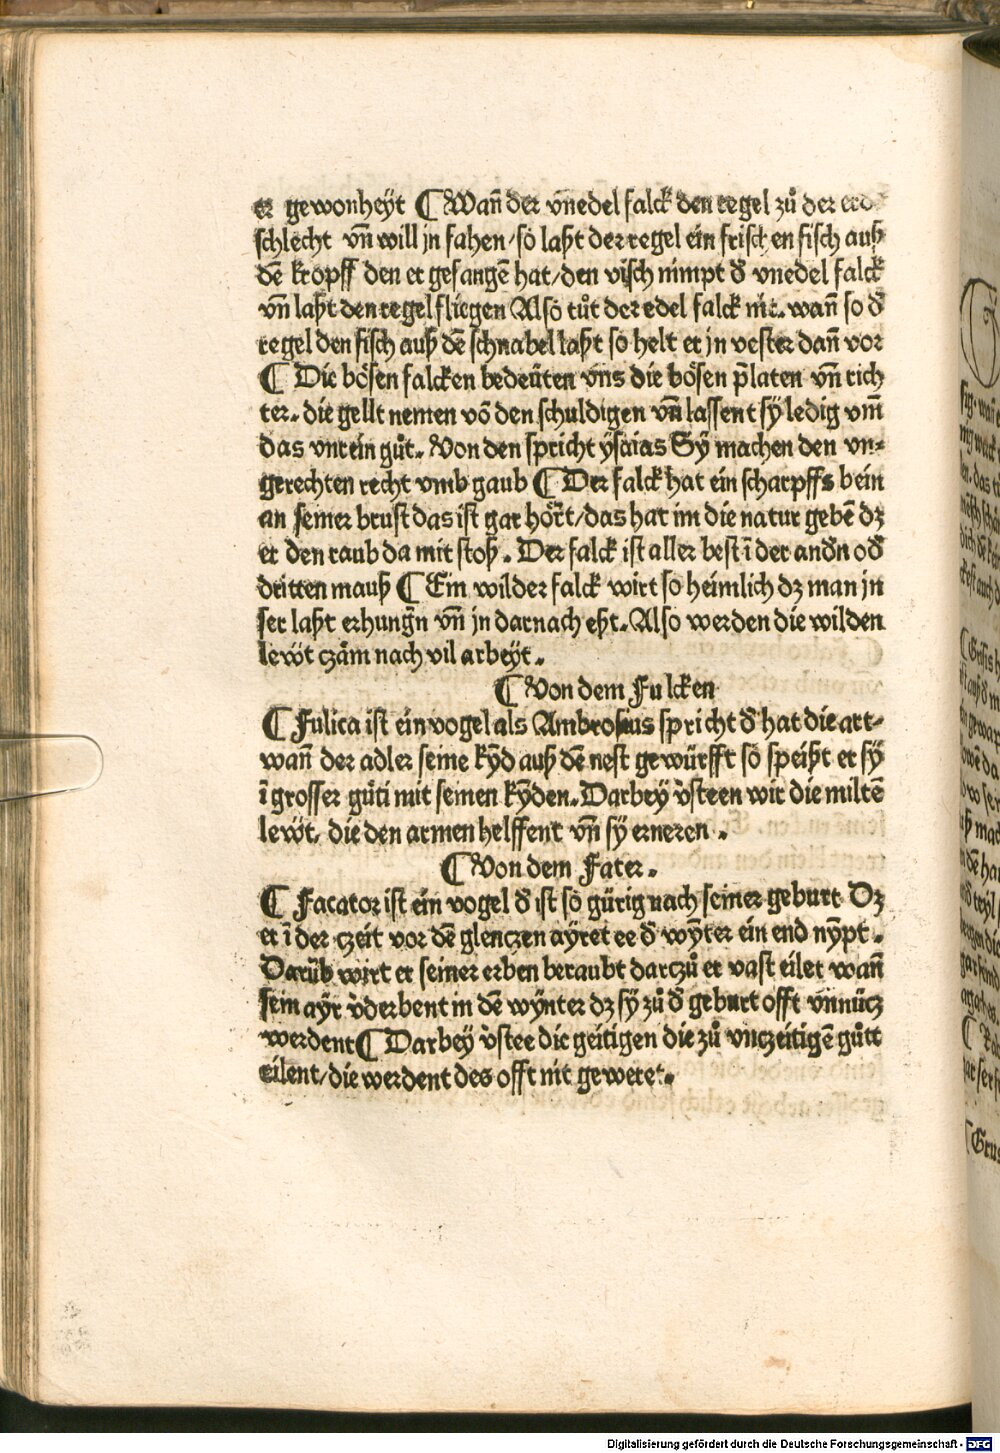 er gewonheyt ¶ Wañ der vñedel falck den regel zů der erd
schlecht vñ will jn fahen/so laßt der regel ein frischen fisch auß
dē kropff den er gefangē hat/den visch nimpt đ vnedel falck
vñ laßt den regel fliegen Also tůt der edel falck nit. wañ so đ
regel den fisch auß dē schnabel laßt so helt er jn vester dañ vor
¶ Die bösen falcken bedeüten vns die bösen p̄laten vñ rich
ter. die gellt nemen vō den schuldigen vñ lassent sÿ ledig vm̄
das vnrein gůt. Von den spricht ysaias Sÿ machen den vn⸗
gerechten recht vmb gaub ¶ Der falck hat ein scharpffs bein
an seiner brust das ist gar hört/das hat im die natur gebē dz
er den raub da mit stoß. Der falck ist aller best ī der andn̄ ođ
dritten mauß ¶ Ein wilder falck wirt so heimlich dz man jn
ser laßt erhungn̄ vñ jn darnach eßt. Also werden die wilden
lewt czäm nach vil arbeÿt.
¶ Von dem Fulcken
¶ Fulica ist ein vogel als Ambrosius spricht đ hat die art⸗
wañ der adler seine kÿd auß dē nest gewürfft so speißt er sÿ
ī grosser güti mit seinen kÿden. Darbey v̓steen wir die miltē
lewt, die den armen helffent vñ sÿ erneren.
¶ Von dem Fater.
¶ Facator ist ein vogel đ ist so gürig nach seiner geburt Dz
er ī der czeit vor dē glenczen ayret ee đ wÿter ein end nÿpt.
Darüb wirt er seiner erben beraubt darczů er vast eilet wañ
sein ayr v̓derbent in dē wynter dz sÿ zů đ geburt offt vnnücz
werdent ¶ Darbey v̓stee die geitigen die zů vnczeitigē gůtt
eilent/die werdent des offt nit gewert.
Digitalisierung gefördert durch die Deutsche Forschungsgemeinschaft - DFG